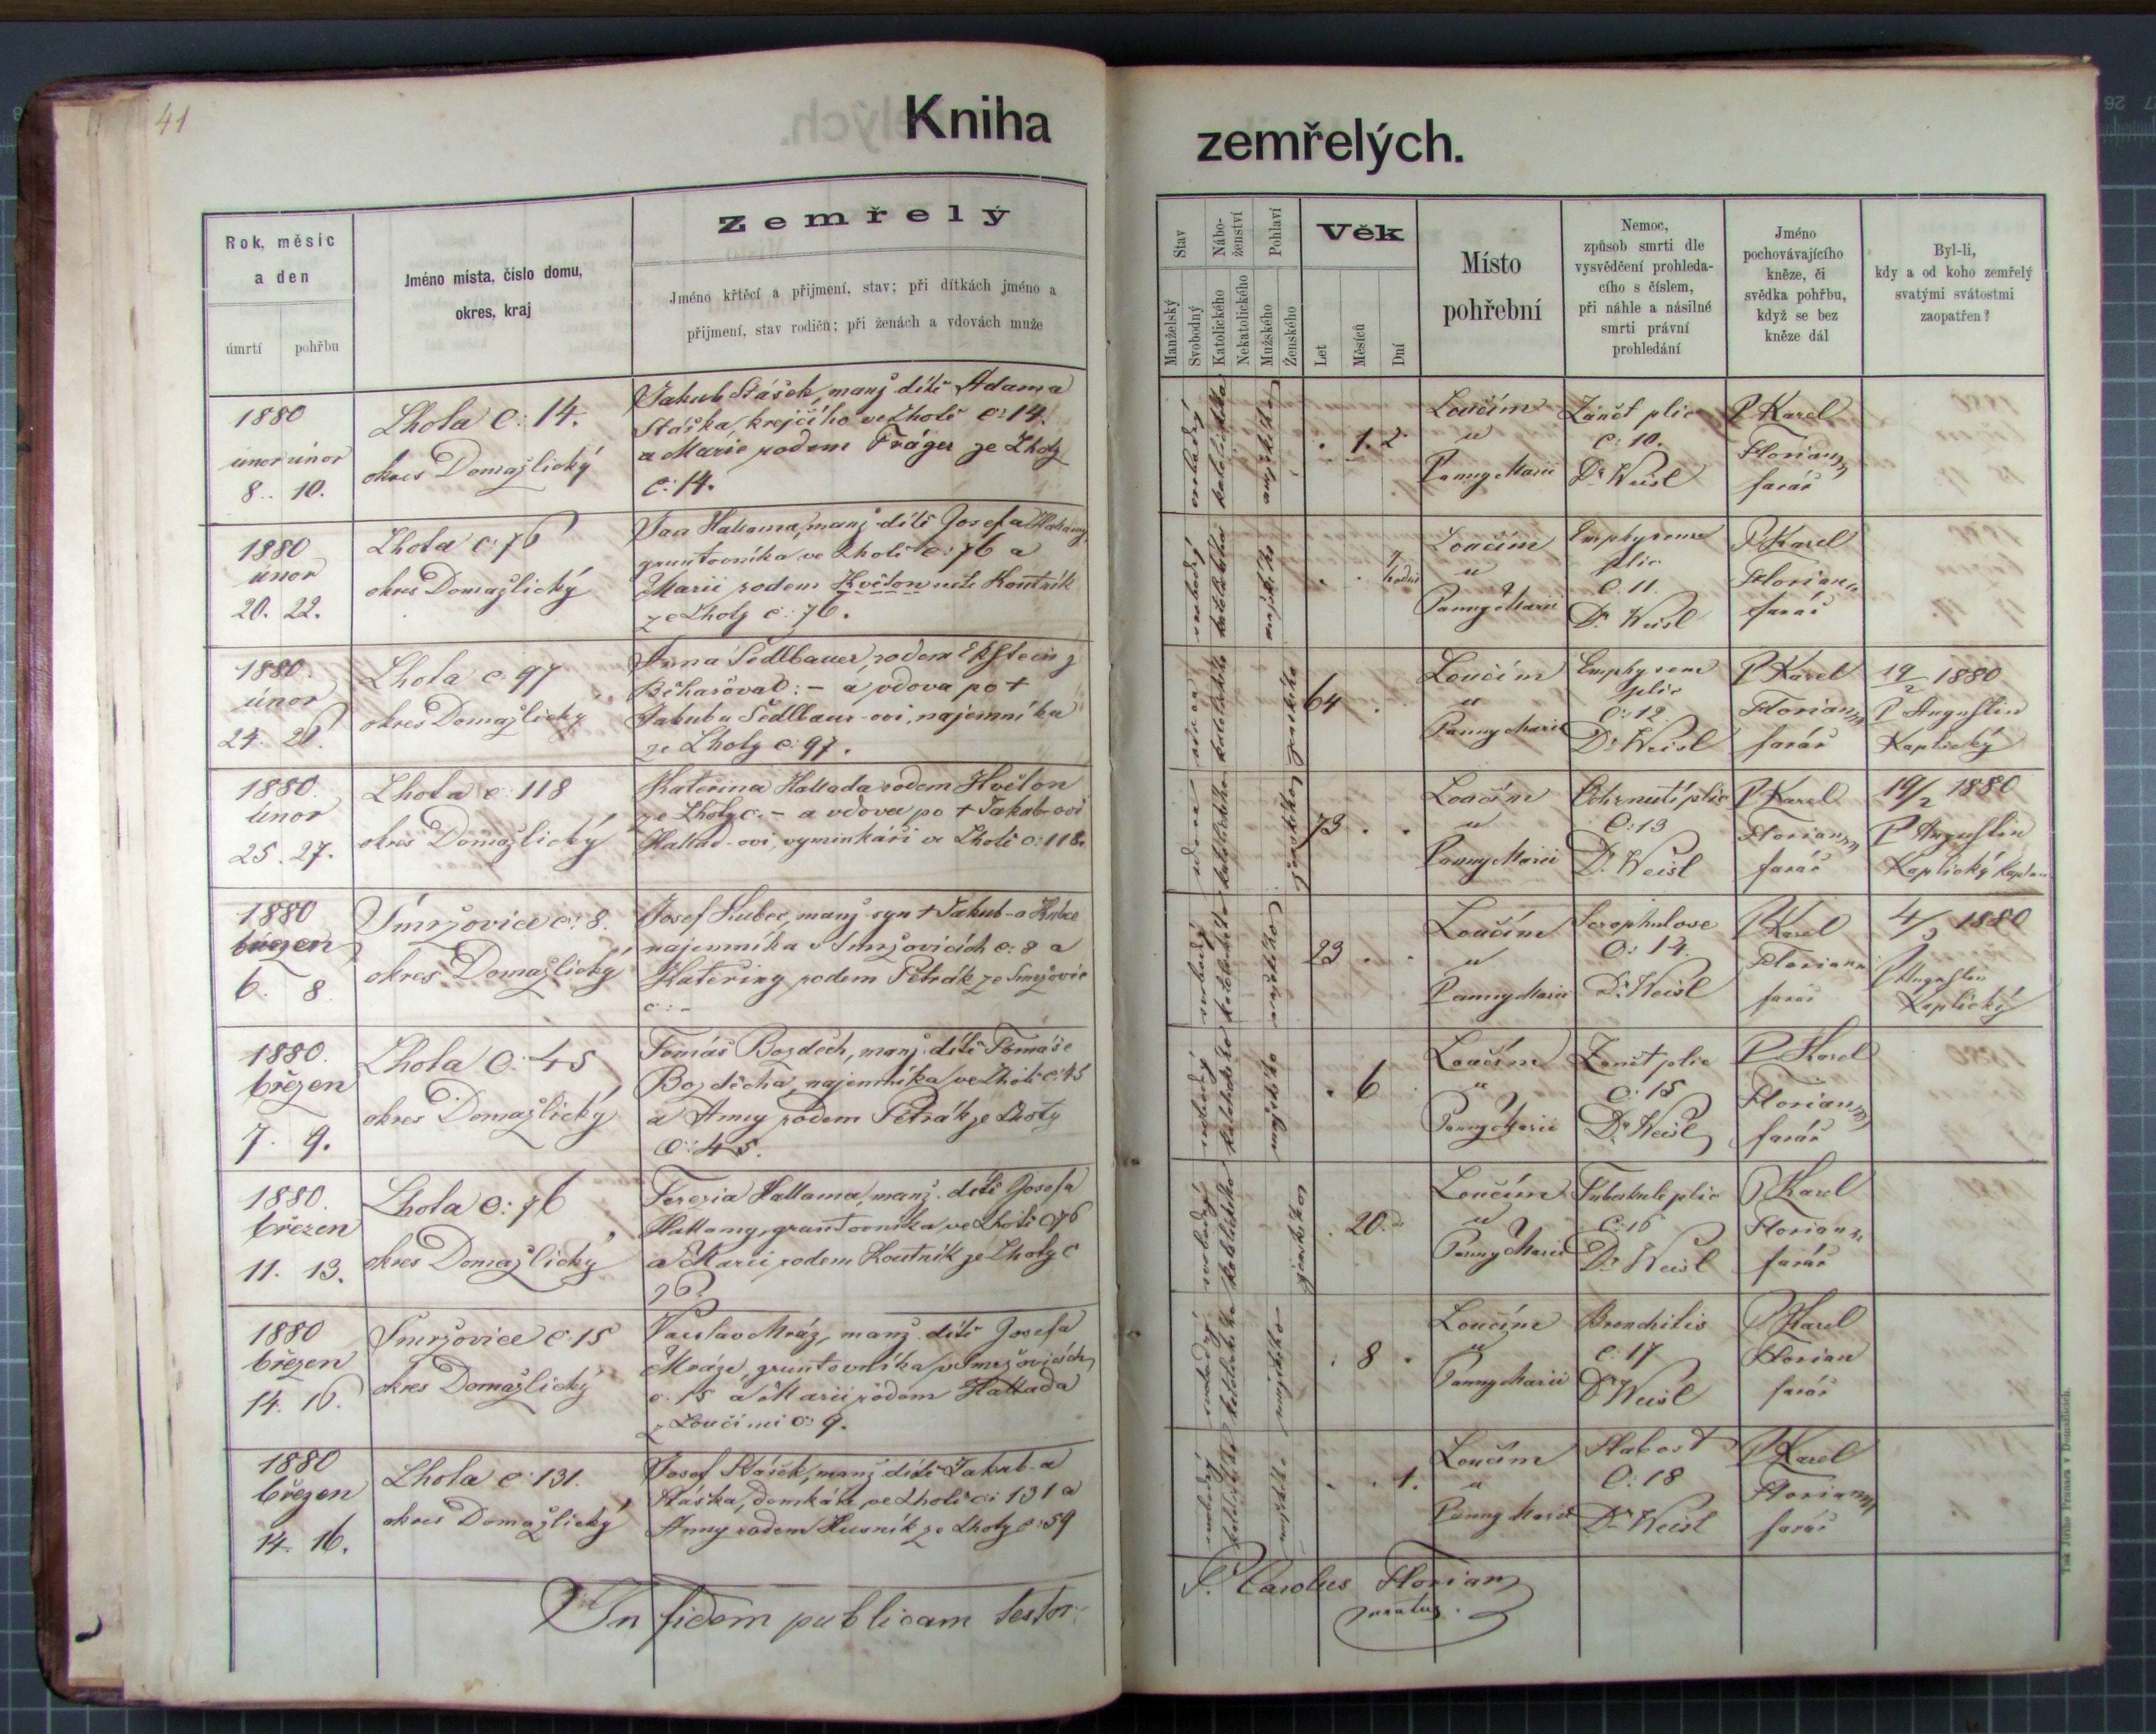 41
Kniha zemřelých.
Rok, měsíc
a den
úmrtí pohřbu
Jméno místa, číslo domu,
okres, kraj
Zemřelý
Jméno křtěcí a přijmení, stav; při dítkách jméno a
přijmení, stav rodičů; při ženách a vdovách muže
Stav
Manželský
Svobodný
Nábo-
ženství
Katolického
Nekatolického
Pohlaví
Mužského
Ženského
Věk
Let
Měsíců
Dní
Místo
pohřební
Nemoc,
způsob smrti dle
vysvědčení prohleda-
cího s číslem,
při náhle a násilné
smrti právní
prohledání
Jméno
pochovávajícího
kněze, či
svědka pohřbu,
když se bez
kněze dál
Byl-li,
kdy a od koho zemřelý
svatými svátostmi
zaopatřen?
1880
únor únor
8. 10.
Lhota č: 14.
okres Domažlický
Jakub Stášek, manž dítě Adama
Stáška, krejčího ve Lhotě č: 14.
a Marie rodem Tráger ze Lhoty
č: 14.
svobodný
katolického
mužského
. 1. 2
Loučim
u
Panny Marie
Zánět plic
č: 10.
Dr Weisl
P Karel
Florian
farář
1880
únor
20. 22.
Lhota č: 76
okres Domažlický
Jan Hallama, manž dítě Josefa Hallamy,
gruntovníka ve Lhotě č: 76 a
Marii rodem Květon Koutník
ze Lhoty č: 76.
svobodný
katolického
mužského
. . hodin
Loučim
u
Panny Marie
Emphysema
plic
č. 11.
Dr. Weisl
P Karel
Florian
farář
1880.
únor
24. 26.
Lhota č 97
okres Domažlický
Anna Sedlbauer, rodem Ekstein z
č: – a vdova po +
Jakubu Sedlbaur-ovi, najemníka
ze Lhoty č: 97.
katolického
ženského
64 .
Loučim
u
Panny Marie
Emphysem
plic
č: 12.
Dr Weisl
P Karel
Florian
farář
19/2 1880
P Augustin
Kaplický
1880.
únor
25. 27.
Lhota č: 118
okres Domažlický
Kateřina Hallada rodem Květon
ze Lhoty č. – a vdova po + Jakub-ovi
Hallad-ovi, vyminkáři ve Lhotě č: 118.
vdova
katolického
ženského
73 . .
Loučim
u
Panny Marii
Ochrnutí plic
č: 13
Dr. Weisl
P Karel
Florian
farář
19/2 1880
P Augustin
Kaplický kaplan
1880
březen
6. 8.
Smržovice č: 8.
okres Domažlický
Josef Kubec, manž syn + Jakub-a Kubce
najemníka v Smržovicích č: 8 a
Kateřiny rodem Petrák ze Smržovic
č: –
svobodný
katolického
mužského
23 . .
Loučim
u
Panny Marie
Scrophulose
č: 14.
Dr. Weisl
P Karel
Florian
farář
4/3 1880
P Augustin
Kaplický
1880.
březen
7. 9.
Lhota č: 45
okres Domažlický
Tomáš Bozděch, manž. dítě Tomáše
Bozděcha, najemníka ve Lhotě č: 45
a Anny rodem Petrák ze Lhoty
č: 45.
svobodný
katolického
mužského
. 6 .
Loučim
u
Panny Marii
Zánět plic
č: 15
Dr Weisl
P Karel
Florian
farář
1880.
březen
11. 13.
Lhota č: 76
okres Domažlický
Terezia Hallama, manž. dítě Josefa
Hallamy, gruntovníka ve Lhotě č 76
a Marii rodem Koutník ze Lhoty č
76.
svobodný
katolického
ženského
. 20.
Loučim
u
Panny Marie
Tuberkule plic
č: 16
Dr Weisl
P Karel
Florian
farář
1880
březen
14. 16.
Smržovice č. 15
okres Domažlický
Vaclav Mráz, manž. dítě Josefa
Mráze, gruntovníka v Smržovicích
č. 15 a Marii rodem Hallada
z Loučimi č: 9.
svobodný
katolického
mužského
. 8 .
Loučim
u
Panny Marii
Bronchitis
č: 17
Dr Weisl
P Karel
Florian
farář
1880
březen
14. 16.
Lhota č: 131.
okres Domažlický
Josef Stášek, manž dítě Jakub-a
Stáška, domkáře ve Lhotě č: 131 a
Anny rodem Husník ze Lhoty č: 59
svobodný
katolického
mužského
. . 1.
Loučim
u
Panny Marie
Slabost
č: 18
Dr Weisl
P Karel
Florian
farář
In fidem publicam testor:
P. Carolus Florian
curatus.